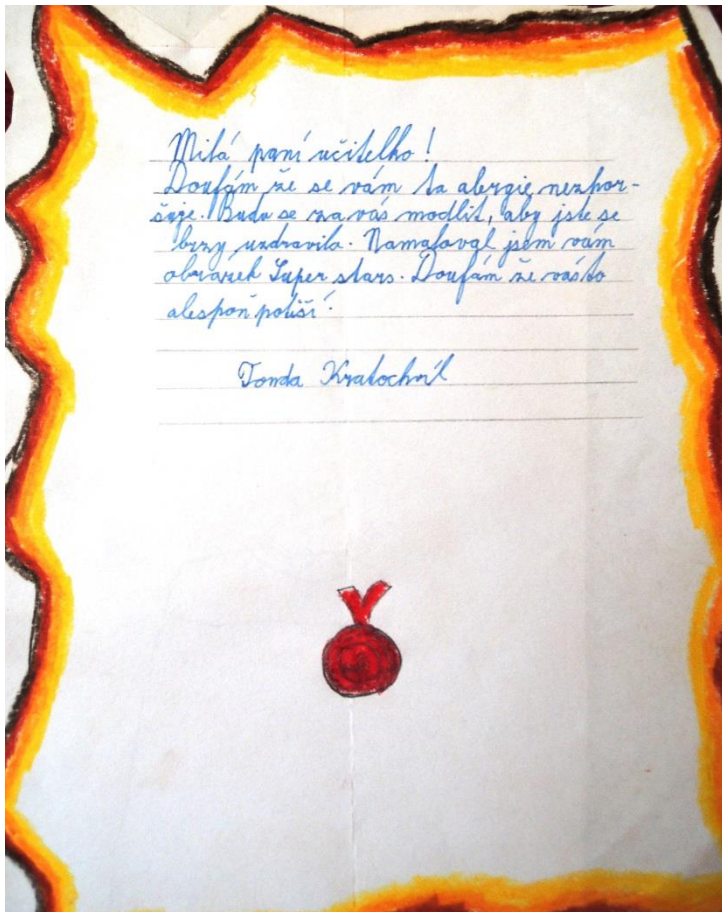 Milá paní učitelko!
Doufám že se vám ta alergie nezhor-
šuje. Budu se za vás modlit, aby jste se
brzy uzdravila. Namaloval jsem vám
obrázek Super stars. Doufám že vás to
alespoň potěší!
Tonda Kratochvíl